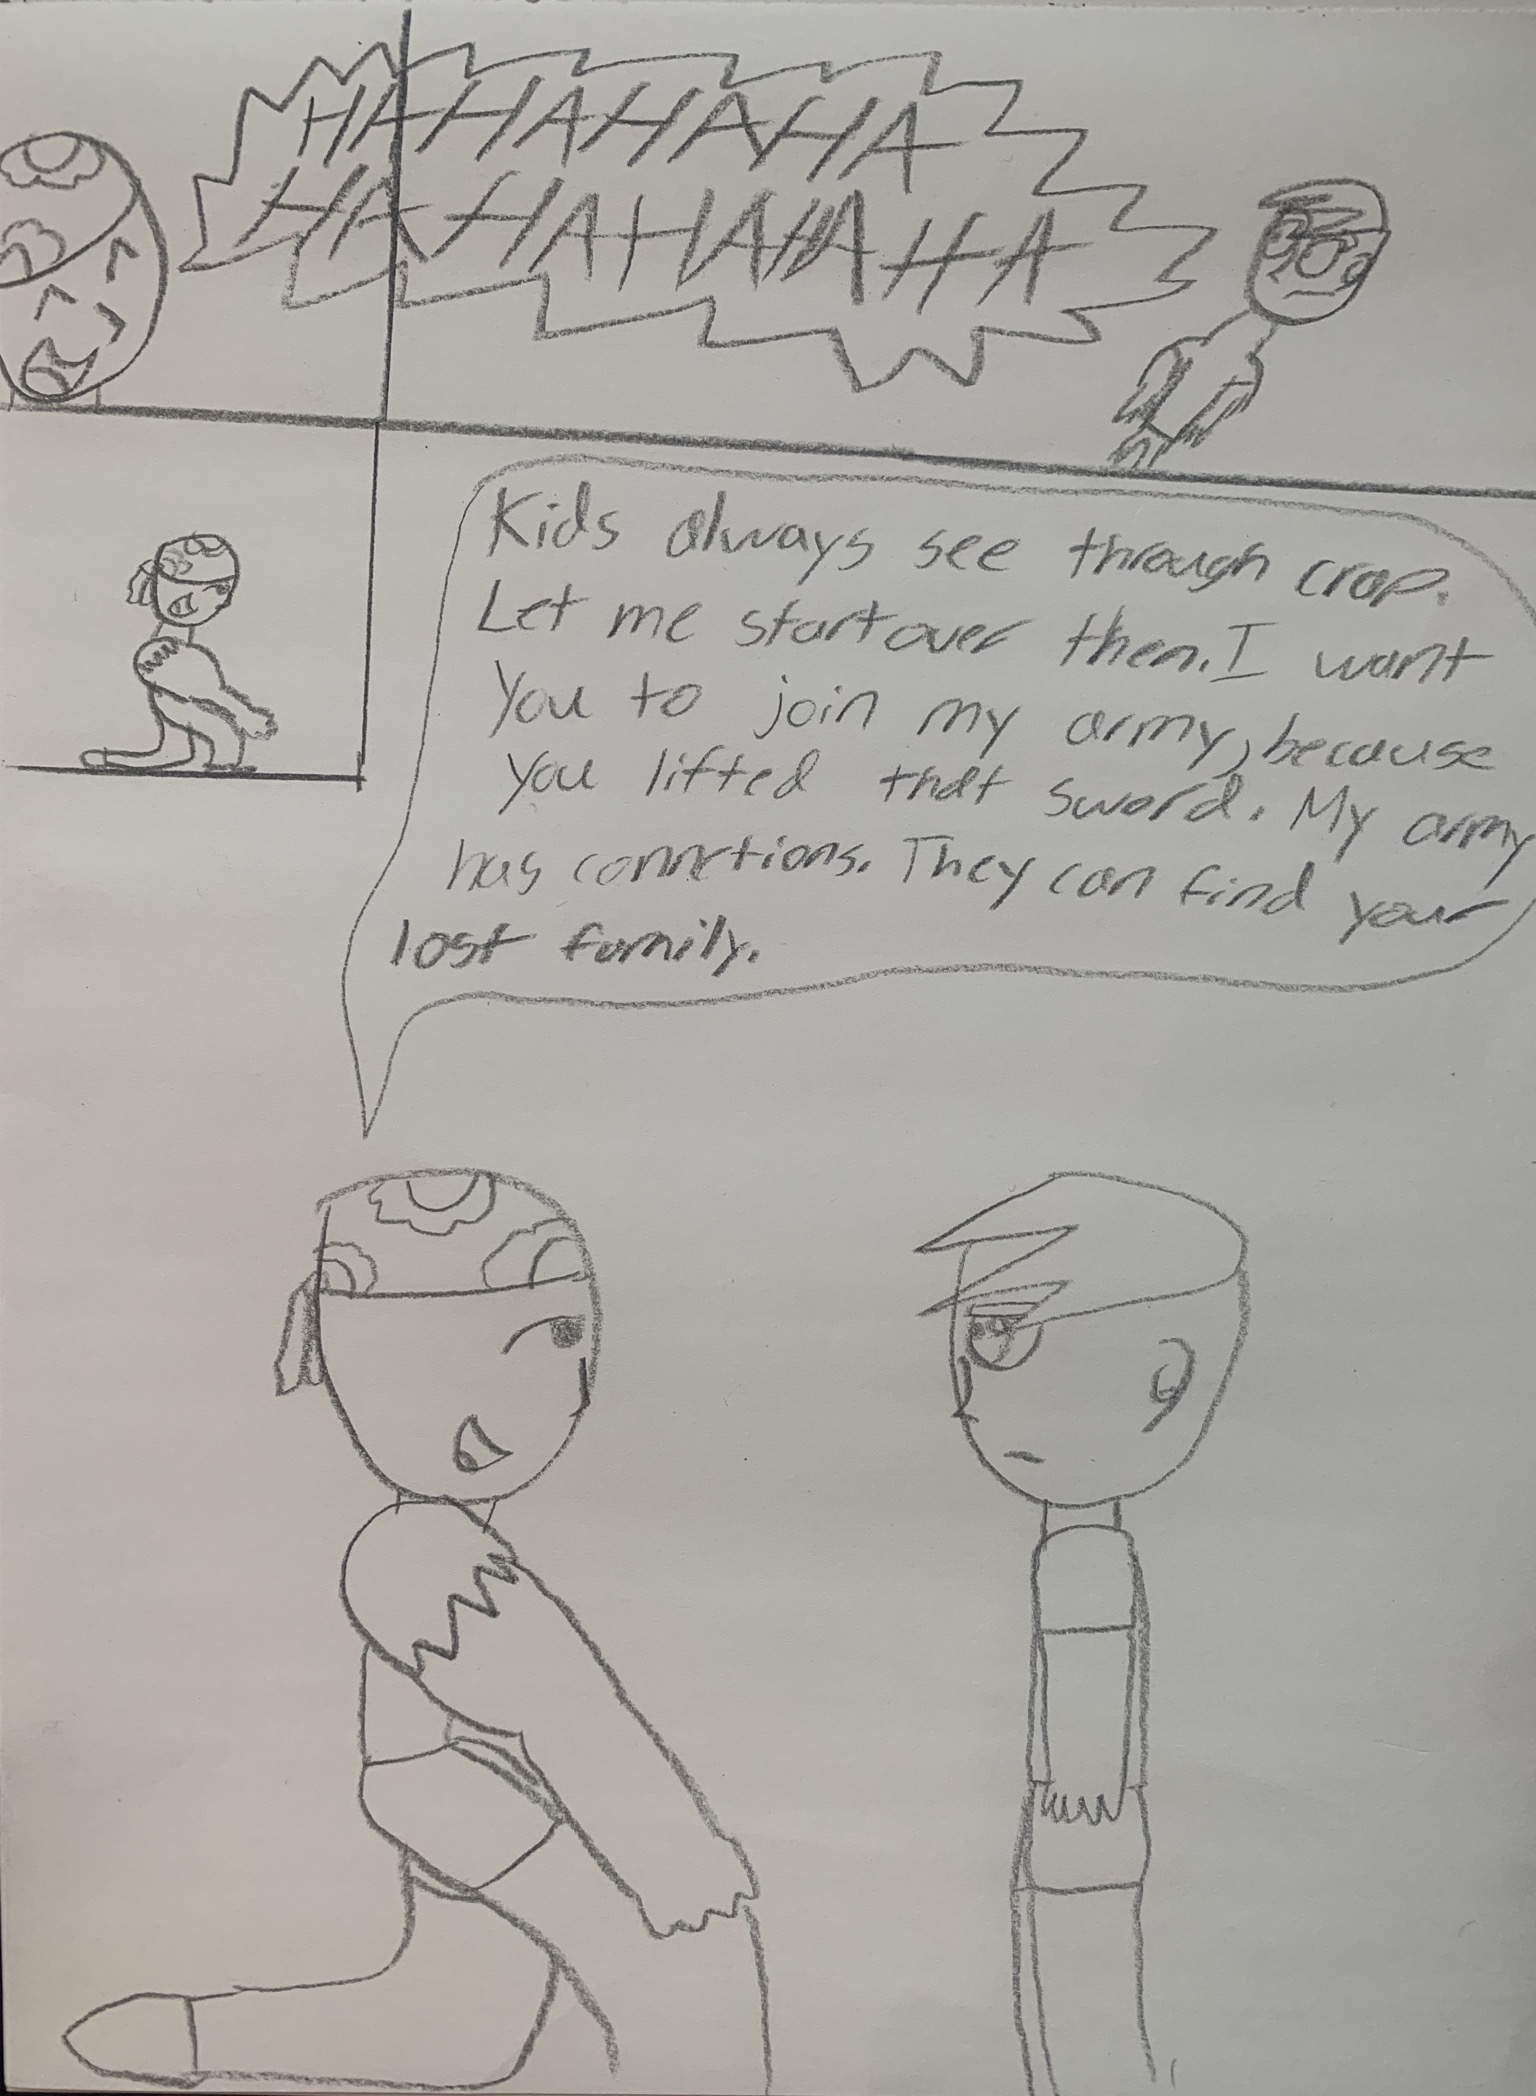 HAHAHAHA
HAHAHAHAHA
Kids always see through crap.
Let me start over then. I want
you to join my army, because
you lifted that sword. My army
has connctions. They can find your
lost family.